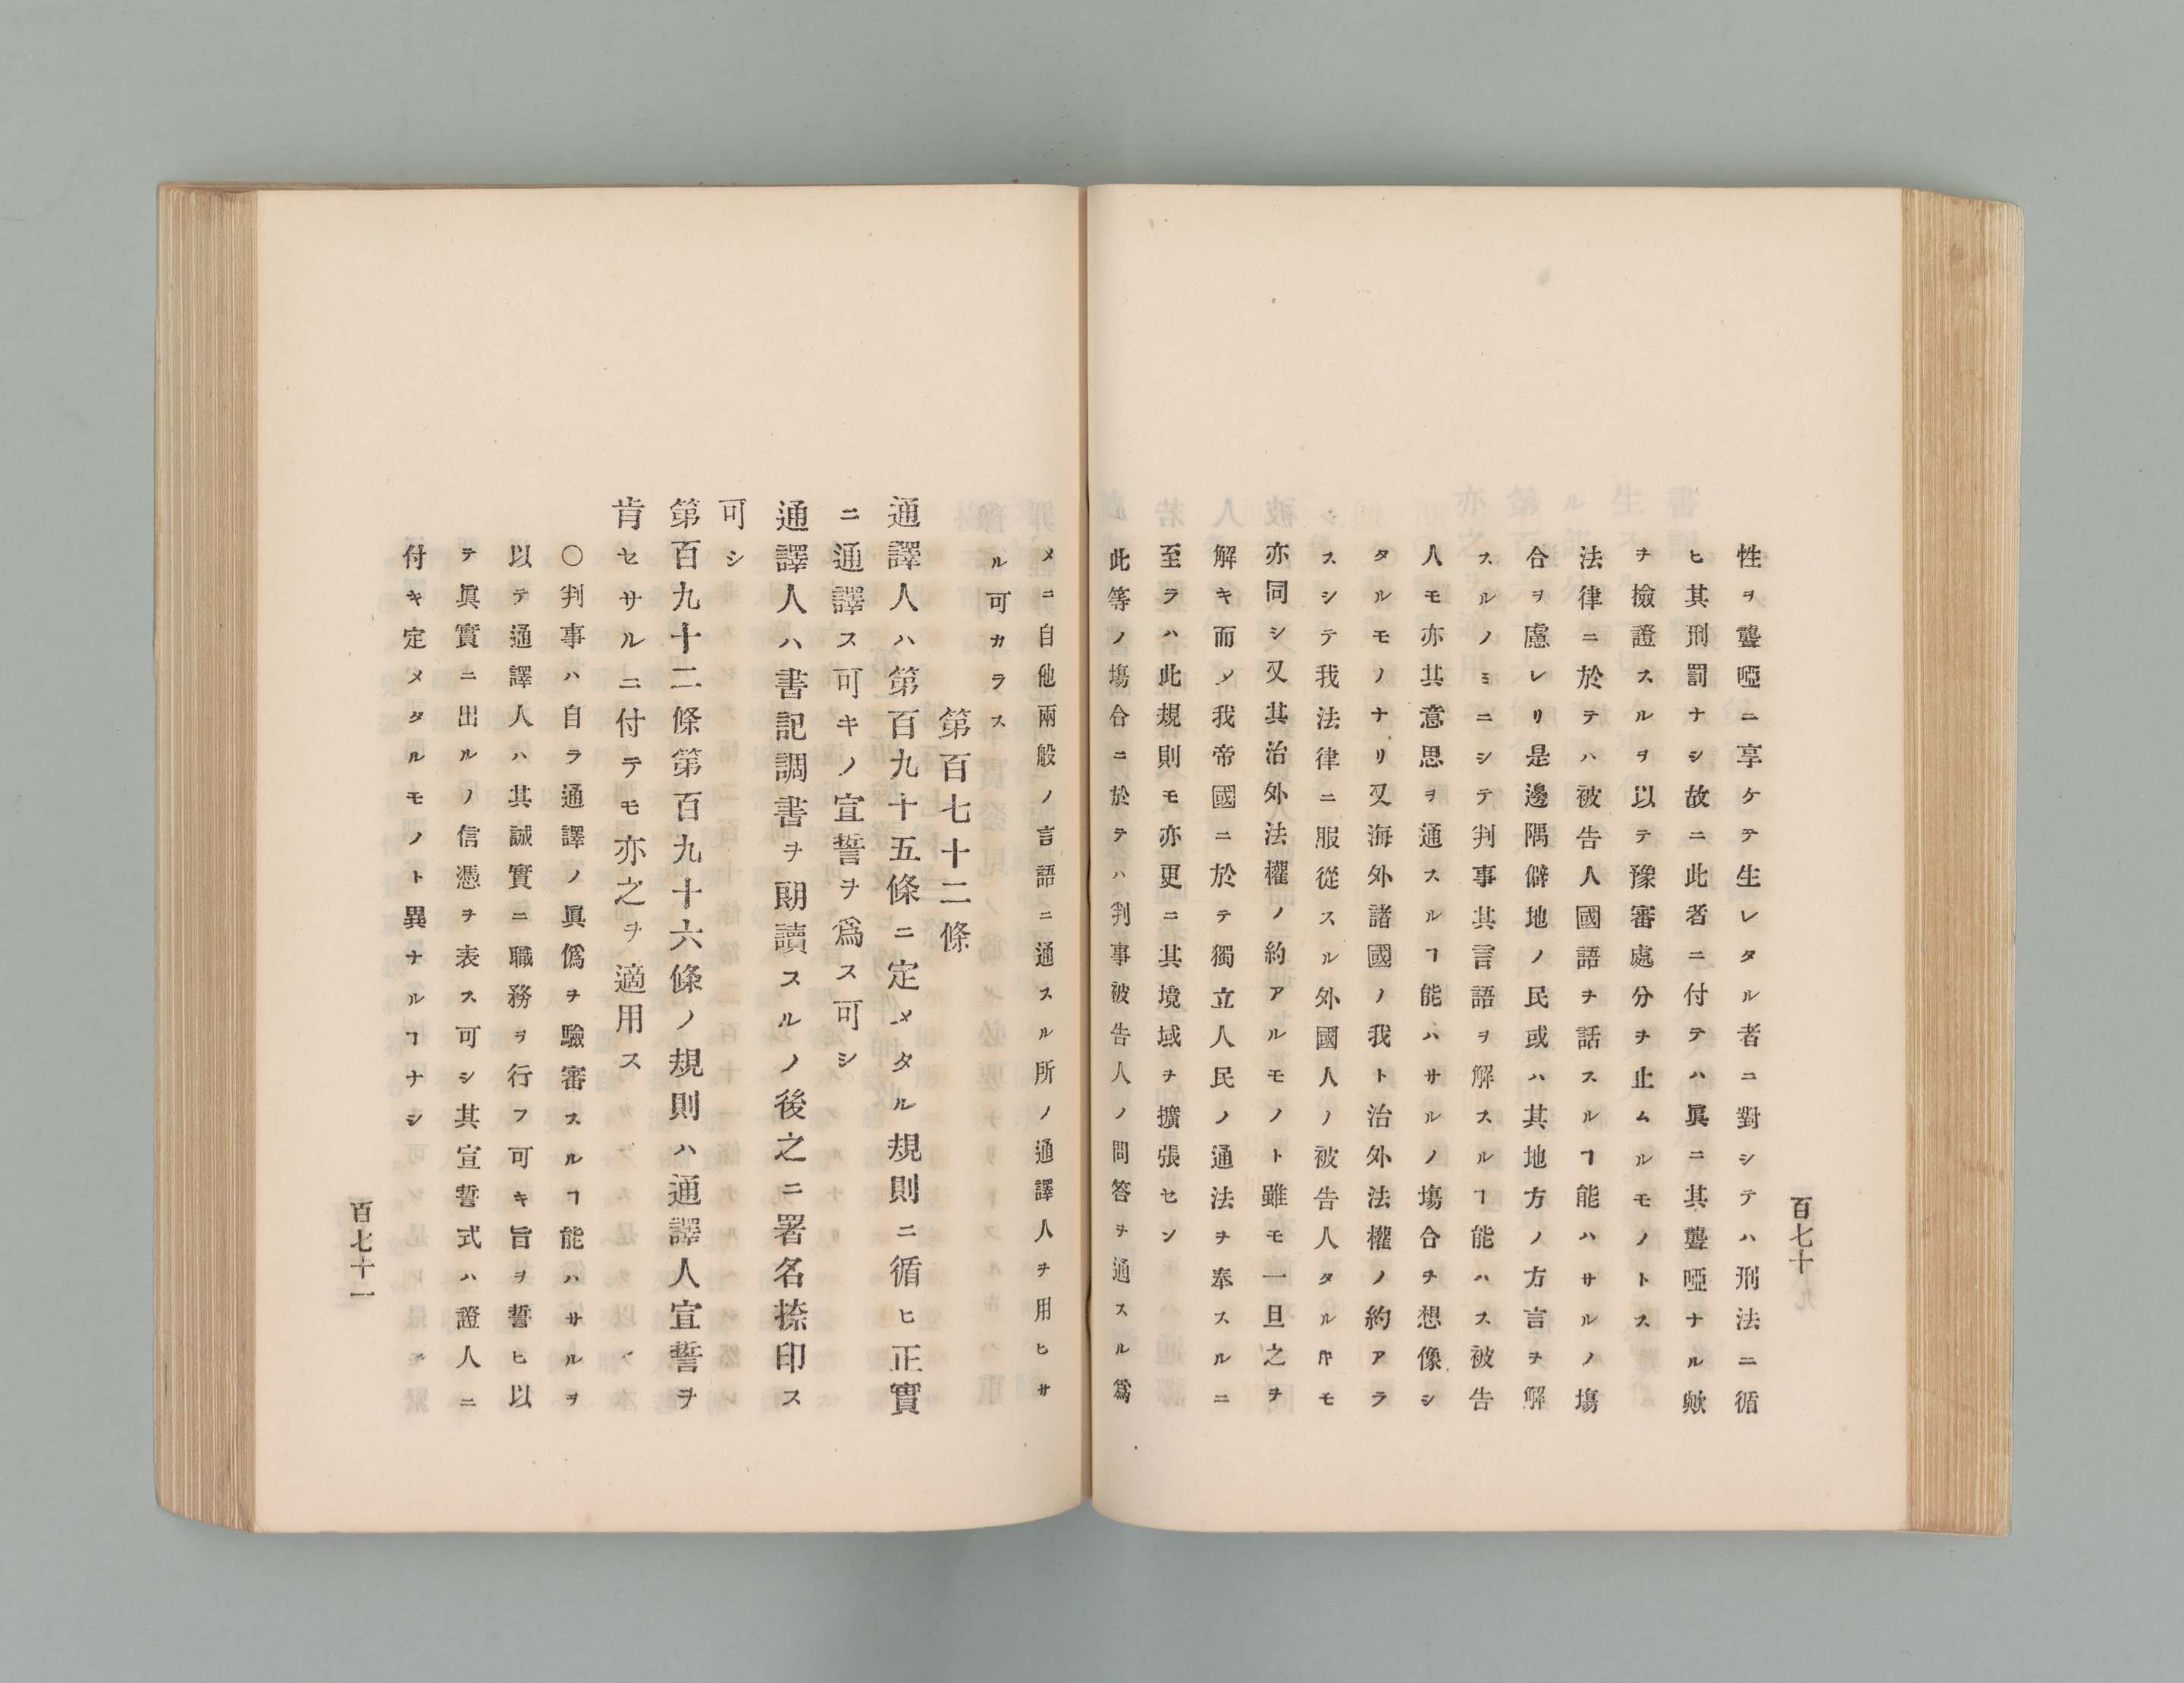 性ヲ聾啞ニ享ケテ生レタル者ニ對シテハ刑法ニ循
ヒ其刑罰ナシ故ニ此者ニ付テハ眞ニ其聾啞ナル歟
ヲ檢證スルヲ以テ豫審處分ヲ止ムルモノトス
法律ニ於テハ被告人國語ヲ話スルヿ能ハサルノ塲
合ヲ慮レリ是邊隅僻地ノ民或ハ其地方ノ方言ヲ解
スルノミニシテ判事其言語ヲ解スルヿ能ハス被告
人モ亦其意思ヲ通スルヿ能ハサルノ塲合ヲ想像シ
タルモノナリ又海外諸國ノ我ト治外法權ノ約アラ
スシテ我法律ニ服從スル外國人ノ被告人タルトキモ
亦同シ又其治外法權ノ約アルモノト雖モ一旦之ヲ
解キ而メ我帝國ニ於テ獨立人民ノ通法ヲ奉スルニ
至ラハ此規則モ亦更ニ其境域ヲ擴張セン
此等ノ塲合ニ於テハ判事被告人ノ問答ヲ通スル爲
百七十
メニ自他兩般ノ言語ニ通スル所ノ通譯人ヲ用ヒサ
ル可カラス
第百七十二條
通譯人ハ第百九十五條ニ定メタル規則ニ循ヒ正實
ニ通譯ス可キノ宣誓ヲ爲ス可シ
通譯人ハ書記調書ヲ朗讀スルノ後之ニ署名捺印ス
可シ
第百九十二條第百九十六條ノ規則ハ通譯人宣誓ヲ
肯セサルニ付テモ亦之ヲ適用ス
〇判事ハ自ラ通譯ノ眞僞ヲ驗審スルヿ能ハサルヲ
以テ通譯人ハ其誠實ニ職務ヲ行フ可キ旨ヲ誓ヒ以
テ眞實ニ出ルノ信憑ヲ表ス可シ其宣誓式ハ證人ニ
付キ定メタルモノト異ナルヿナシ
百七十一